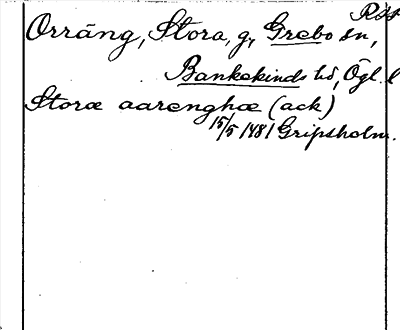 Rös
Orräng, Stora, g, Grebo sn,
Bankekinds hd, Ögl. l
Storæ aarenghæ (ack)
15/5 1481 Gripsholm.